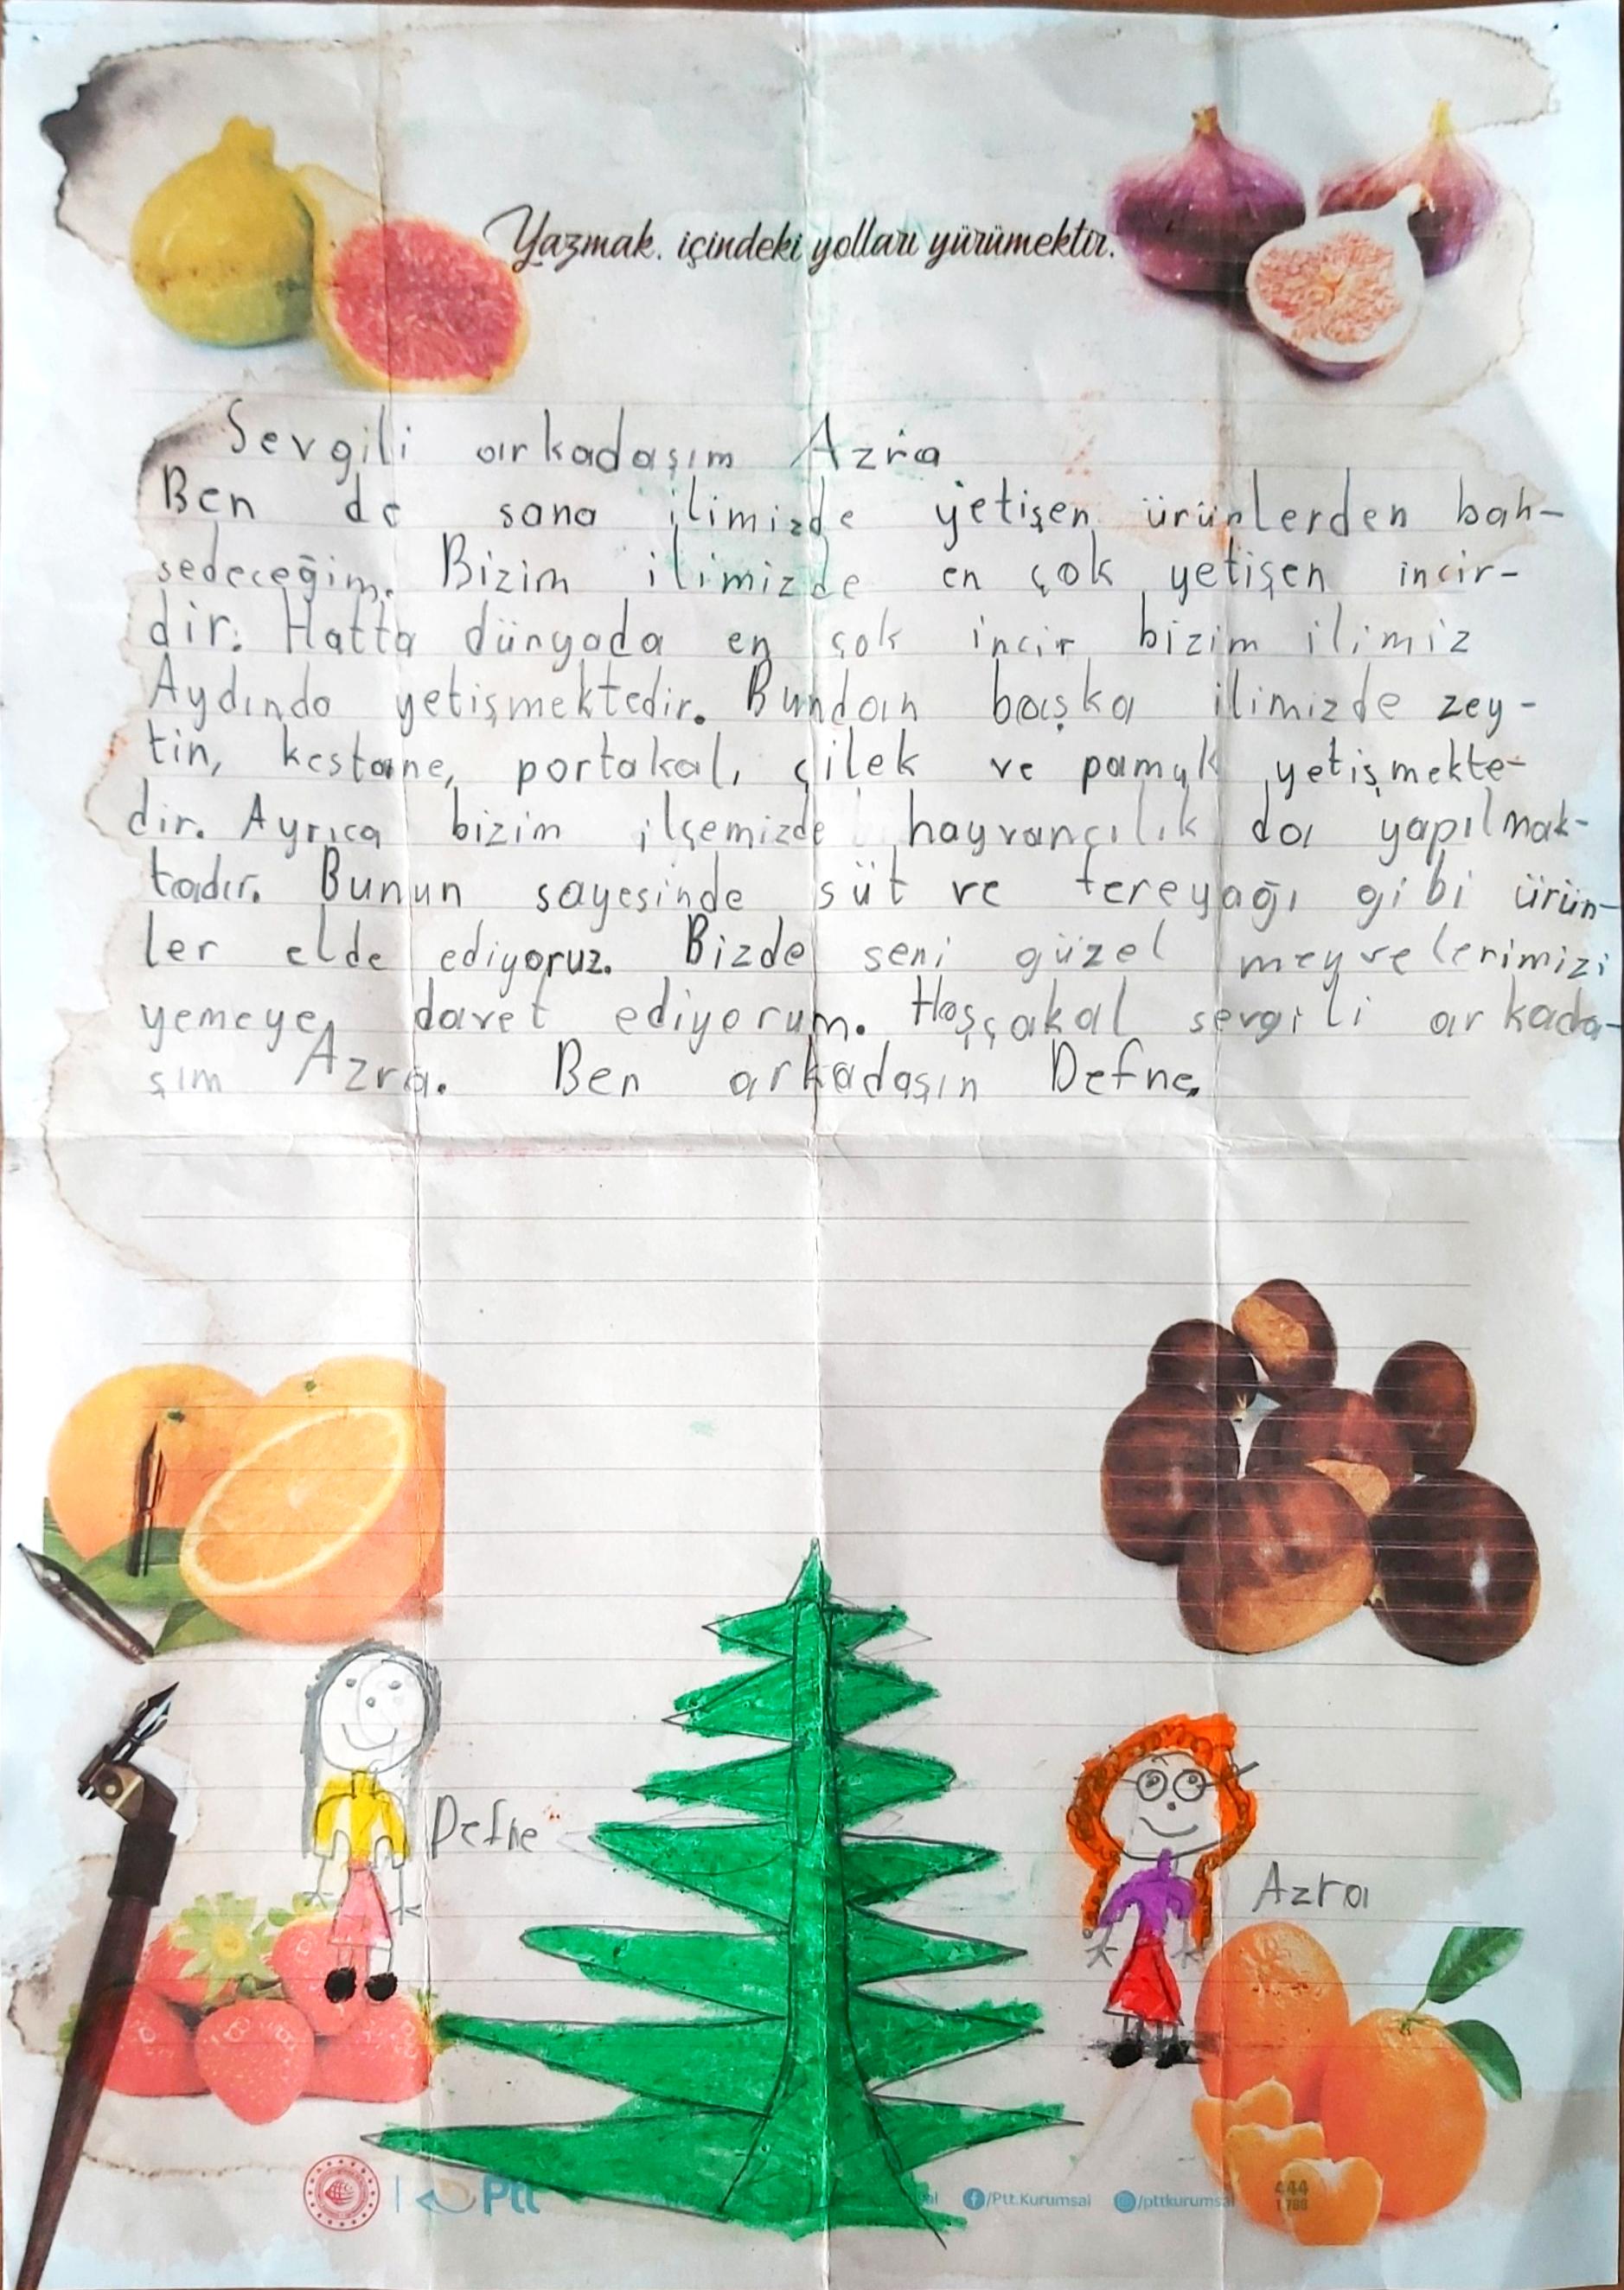 Yazmak, içindeki yolları yürümektir.
Sevgili arkadaşım Azra
Ben de sana ilimizde yetişen ürünlerden bah-
sedeceğim. Bizim ilimizde en çok yetişen incir-
dir. Hatta dünyada en çok incir bizim ilimiz
Aydında yetişmektedir. Bundan başka ilimizde zey-
tin, kestane, portakal, çilek ve pamuk yetişmekte-
dir. Ayrıca bizim ilçemizde hayvancılık da yapılmak-
tadır. Bunun sayesinde süt ve tereyağı gibi ürün-
ler elde ediyoruz. Bizde seni güzel meyvelerimizi
yemeye davet ediyorum. Hoşçakal sevgili arkada-
şım Azra. Ben arkadaşın Defne.
Defne
Azra
Ptt
/Ptt.Kurumsal
/pttkurumsal
444
1 788